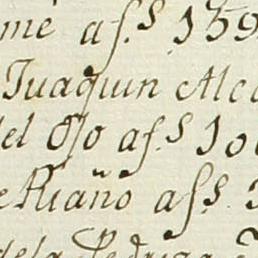 me af.s 159
Juaquin Alca
del Ojo af.s 100
e Riaño af.s
dela Pedriza